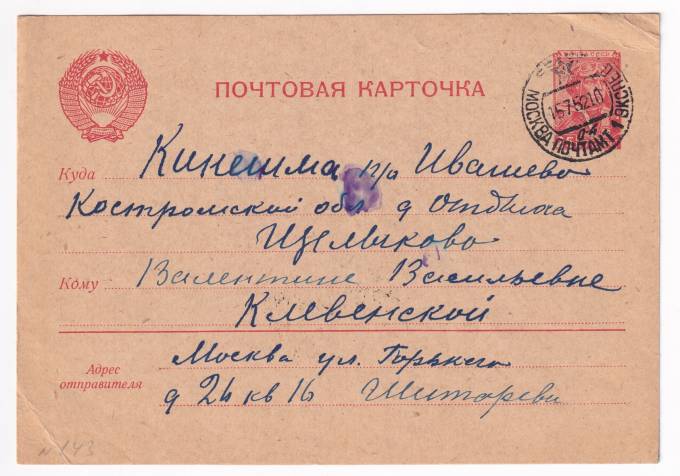 ПОЧТОВАЯ КАРТОЧКА
МОСКВА ПОЧТАМТ 1 ЭКСПЕД
15 7 52 10
Куда Кинешма п/о Ивашево
Костромской обл д Отдыха
Щелыково
Кому Валентине Васильевне
Клевенской
Адрес отправителя
Москва ул. Горького
д 26 кв 16
N 143